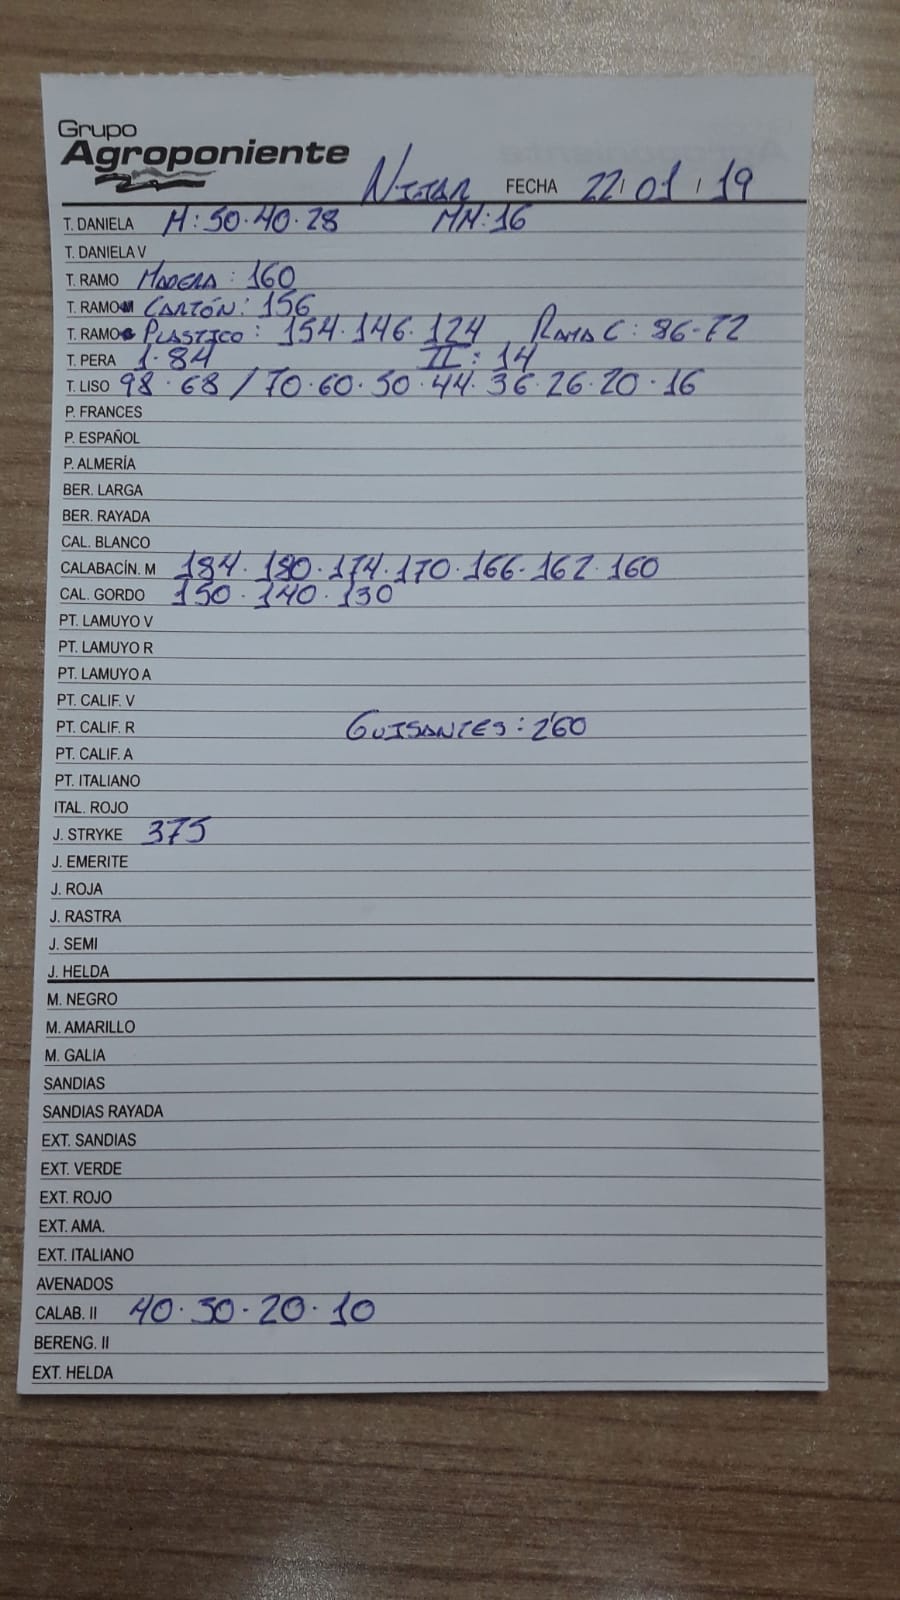 Grupo
Agroponiente
Nijar FECHA 22/01/19
T. DANIELA M: 50·40·28 MM: 16
T. DANIELA V
T. RAMO MADERA: 160
T. RAMO CARTÓN: 156
T. RAMO PLASTICO: 154·146·124 RAMA C: 86-72
T. PERA 1·84 II: 14
T. LISO 98·68/70·60·50·44·36·26·20·16
P. FRANCES
P. ESPAÑOL
P. ALMERÍA
BER. LARGA
BER. RAYADA
CAL. BLANCO
CALABACÍN. M 184·180·174·170·166·162·160
CAL. GORDO 150·140·130
PT. LAMUYO V
PT. LAMUYO R
PT. LAMUYO A
PT. CALIF. V
PT. CALIF. R GUISANTES: 2'60
PT. CALIF. A
PT. ITALIANO
ITAL. ROJO
J. STRYKE 375
J. EMERITE
J. ROJA
J. RASTRA
J. SEMI
J. HELDA
M. NEGRO
M. AMARILLO
M. GALIA
SANDIAS
SANDIAS RAYADA
EXT. SANDIAS
EXT. VERDE
EXT. ROJO
EXT. AMA.
EXT. ITALIANO
AVENADOS
CALAB. II 40·30·20·10
BERENG. II
EXT. HELDA